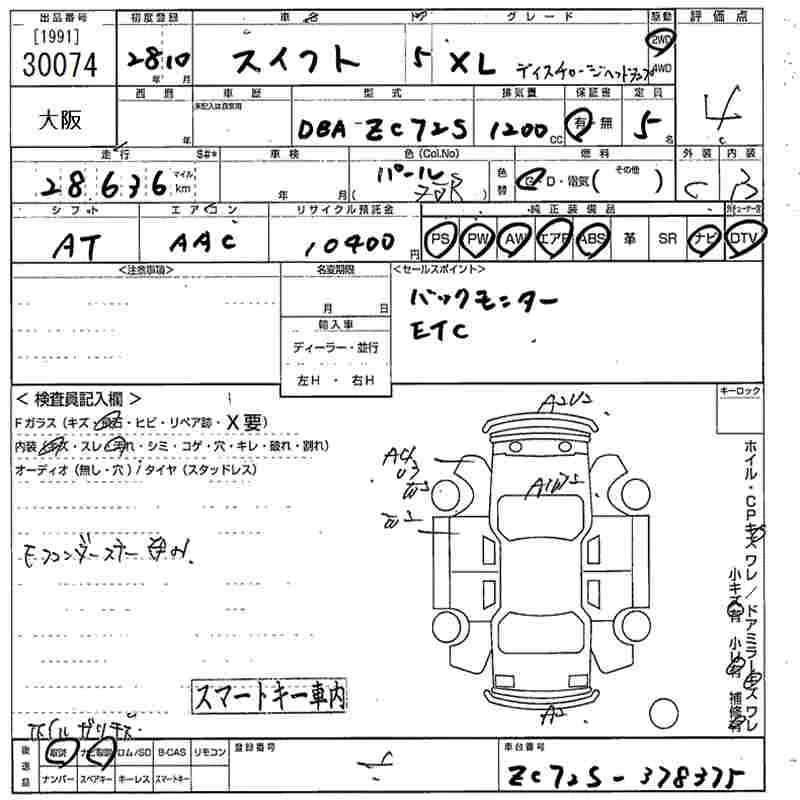 出品番号 初度登録 車名 ドア グレード 駆動 評価点
[1991]
30074 28 10 年 月 スイフト 5 XL ディスチャージヘッドランプ 2WD 4WD
大阪 西暦 車歴 型式 排気量 保証書 定員 4
年 未記入は自家用 DBA-ZC72S 1200 CC 有・無 5 名
走行 S#* 車検 色(Col.No) 色替 燃料 外装 内装
28,636 マイル km 年 月 パール ( ) G・D・電気( その他 ) C B
シフト エアコン リサイクル預託金 純正装備品
AT AAC 10400 円 PS PW AW エアB ABS 革 SR ナビ DTV
<注意事項> 名変期限 <セールスポイント>
月 日 バックモニター
輸入車 ETC
ディーラー・並行
左H ・ 右H
< 検査員記入欄 > キーロック
Fガラス(キズ・飛石・ヒビ・リペア跡・X要) A2U2
内装(キズ・スレ・汚れ・シミ・コゲ・穴・キレ・破れ・割れ)
オーディオ(無し・穴)/タイヤ(スタッドレス)
A4
U3
A1
ホイル・CPキズ ワレ/ドアミラーキズ ワレ
小キズ有 小U有 補修有
Fフェンダーステー
スマートキー車内
ホイルガリキズ. A2
後返品 取説 ナビ取説 ロム/SD B-CAS リモコン 登録番号 車台番号
ナンバー スペアキー キーレス スマートキー ZC72S-378375